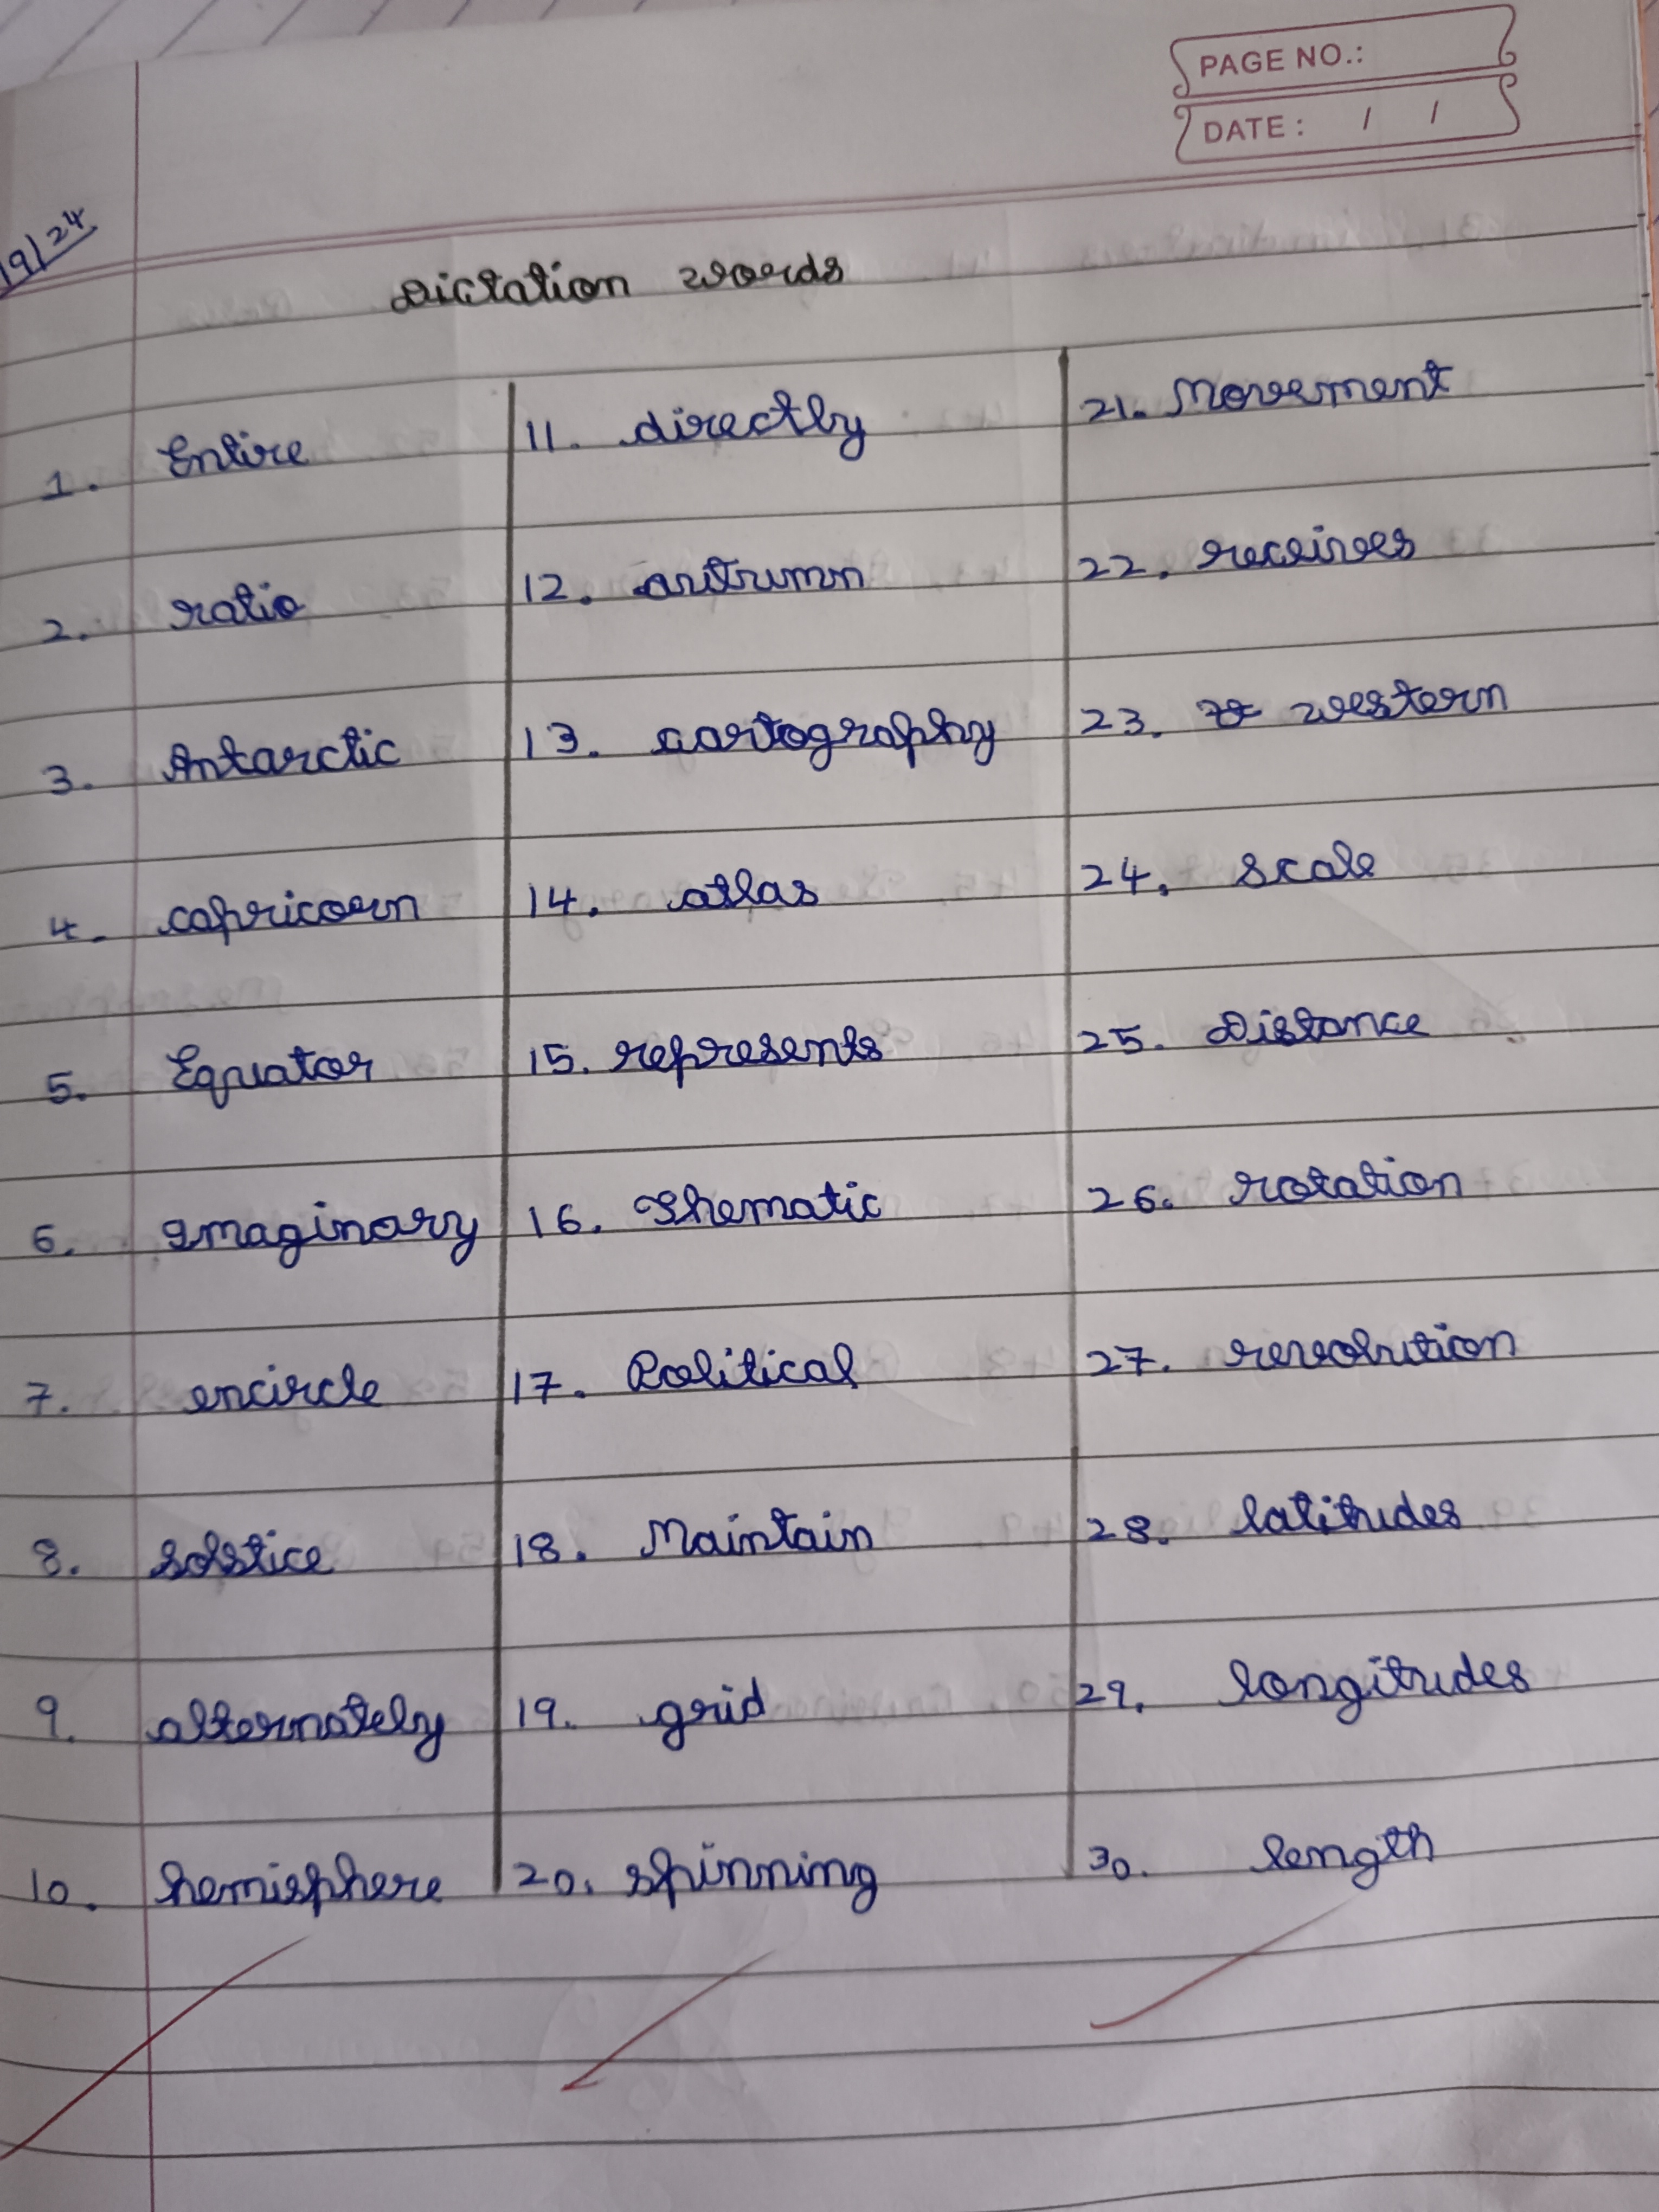 PAGE NO.:
DATE: / /
19/24
Dictation words
1. Entire
2. ratio
3. Antarctic
4. capricorn
5. Equator
6. Imaginary
7. encircle
8. solstice
9. alternately
10. hemisphere
11. directly
12. autumn
13. cartography
14. atlas
15. represents
16. Thematic
17. Political
18. Maintain
19. grid
20. spinning
21. Movement
22. receives
23. western
24. scale
25. Distance
26. rotation
27. revolution
28. latitudes
29. longitudes
30. length